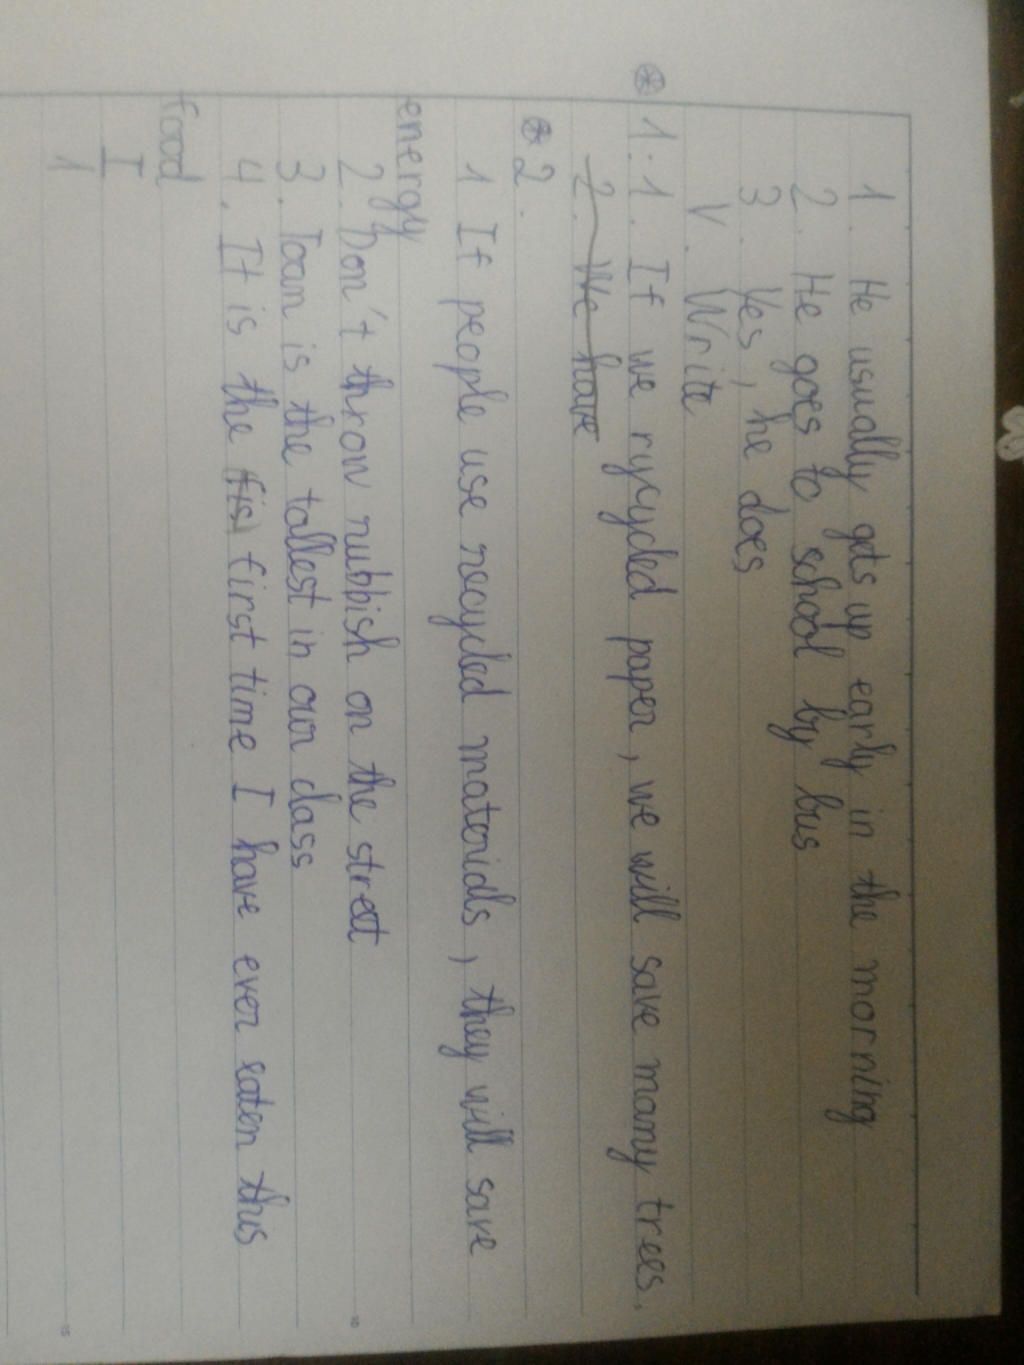 1. He usually gets up early in the morning
2. He goes to school by bus
3. Yes, he does
V. Write
⊛ 1: 1. If we rycycled paper, we will save many trees.
2. We have
⊛ 2.
1 If people use recycled materials, they will save
energy
2. Don't throw rubbish on the street
3. Toan is the tallest in our class
4. It is the (fis) first time I have ever eaten this
food
I
1
10
15